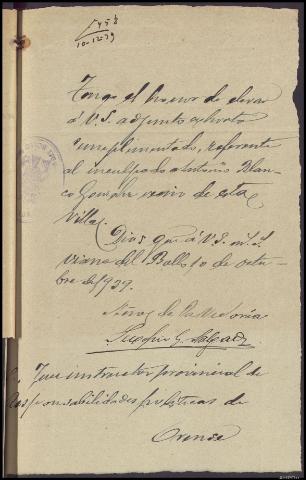 10-12-39
Tengo el honor de elevar
á V.S. adjunto exhorto
cumplimentado, referente
al inculpado Antonio Blan-
co González vecino de esta
Villa.
Dios gue á V.S. m. a.
Viana del Bollo 10 de octu-
bre de 1939.
de la Victoria
Juez instructor provincial de
responsabilidades políticas de
Orense